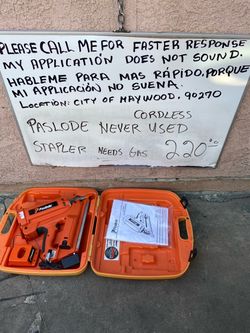 PLEASE CALL ME FOR FASTER RESPONSE
MY APPLICATION DOES NOT SOUND.
HABLEME PARA MAS RÁPIDO, PORQUE
MI APPLICACIÓN NO SUENA.
LOCATION: CITY OF MAYWOOD. 90270
CORDLESS
PASLODE NEVER USED
STAPLER NEEDS GAS 220